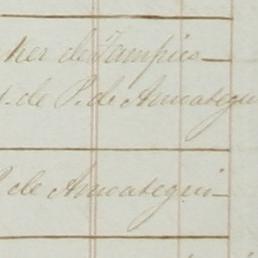 her de Tampico
de P. de Amoategui
de Amoategui